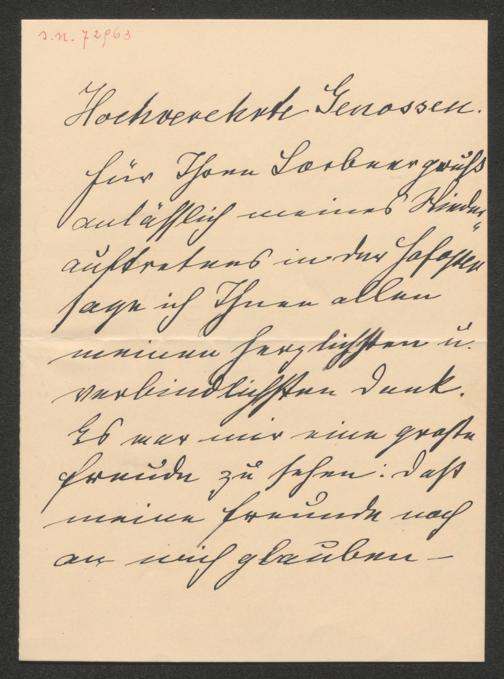 s.n. 72963
Hochverehrte Genossen.
Für Ihren Lorbeergruß
anläßlich meines Wieder-
auftretens in der Hofoper
sage ich Ihnen allen
meinen herzlichsten u.
verbindlichsten Dank.
Es war mir eine große
Freude zu sehen: daß
meine Freunde noch
an mich glauben –